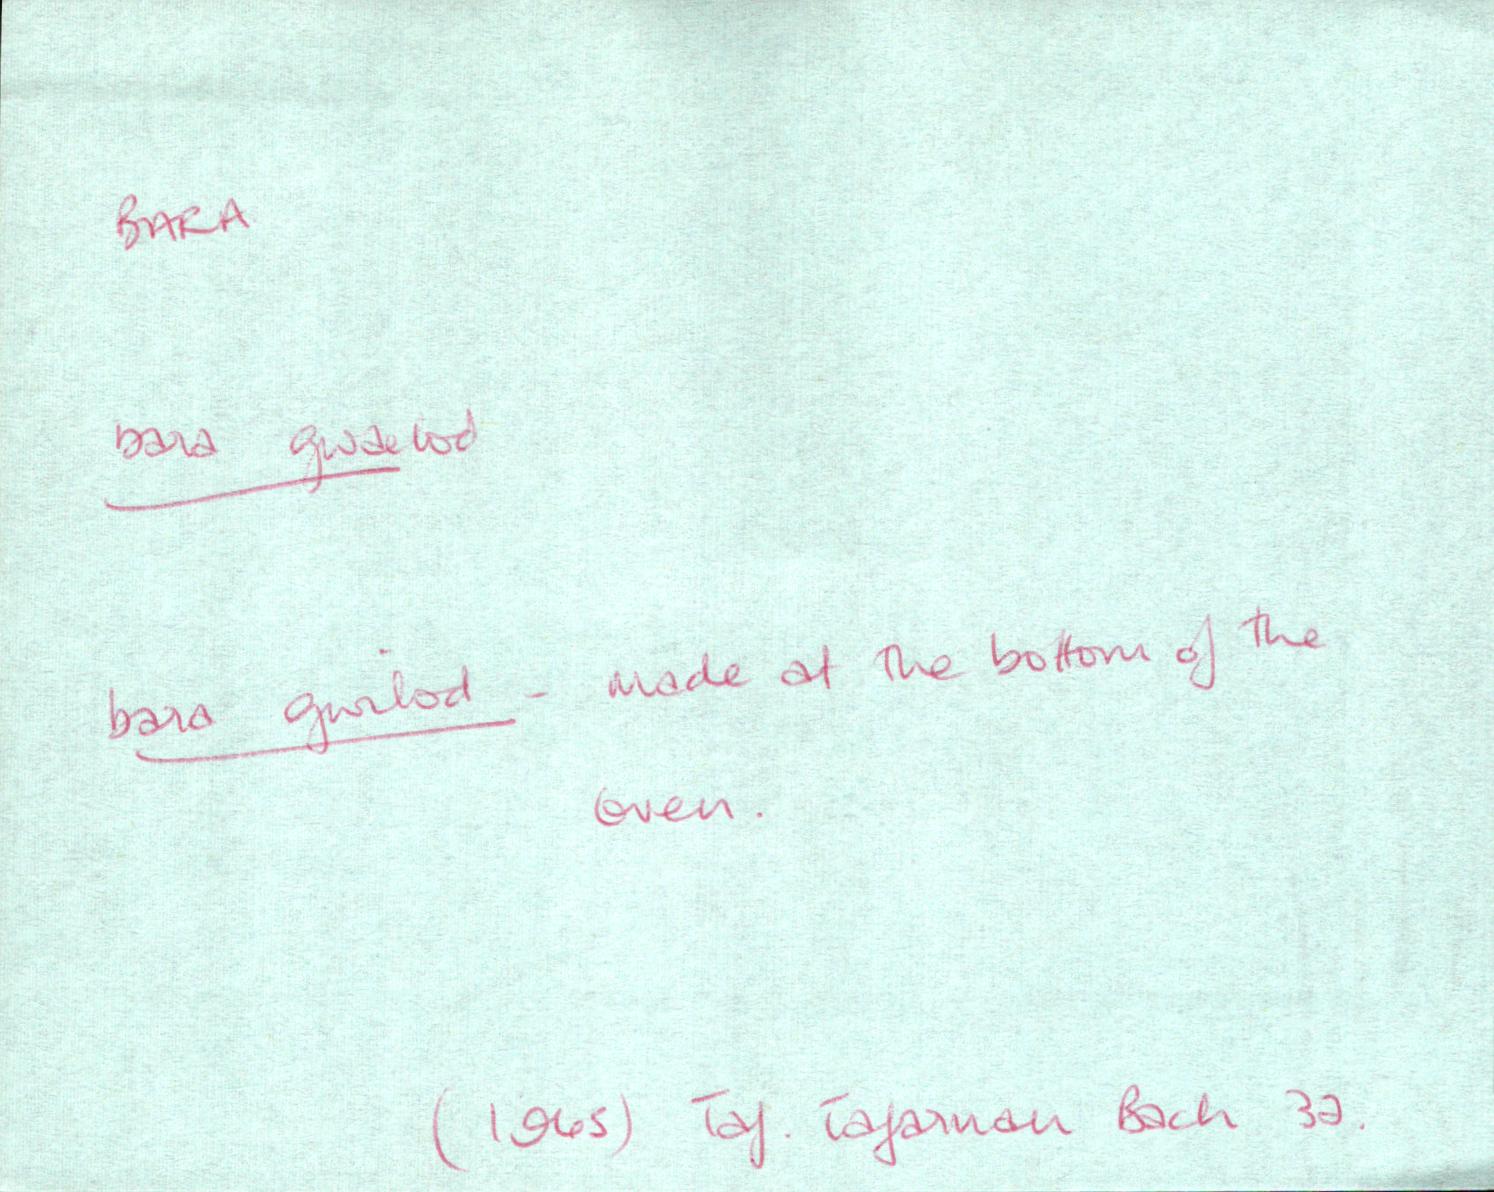 BARA
bara gwaelod
bara gwilod - made at the bottom of the
oven.
(1965) Taf. Tafarnau Bach 32.